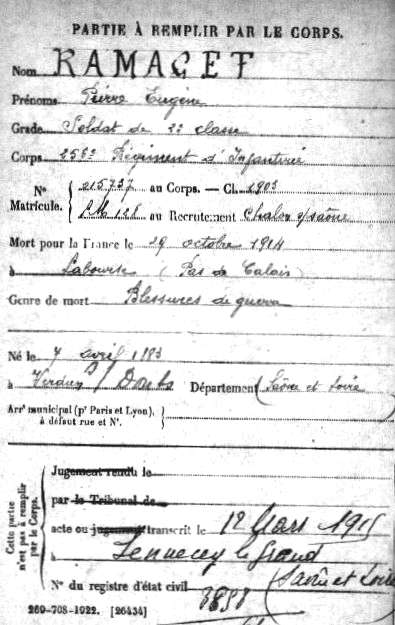 PARTIE À REMPLIR PAR LE CORPS.
Nom RAMAGET
Prénoms Pierre Eugène
Grade Soldat de 2e classe
Corps 256e Régiment d'Infanterie
N° 215737 au Corps. — Cl. 1903
Matricule. 128 au Recrutement Chalon s/saône
Mort pour la France le 29 octobre 1914
à Labourse (Pas de Calais)
Genre de mort Blessures de guerre
Né le 7 avril 1883
à Verdun s/ Doubs Département Saône et Loire
Arrt municipal (pr Paris et Lyon),
à défaut rue et N°.
Cette partie
n'est pas à remplir
par le Corps.
Jugement rendu le
par le Tribunal de
acte ou jugement transcrit le 12 Mars 1915
à Sennecey le Grand
(Saône et Loire
N° du registre d'état civil
269-708-1922. [26434]